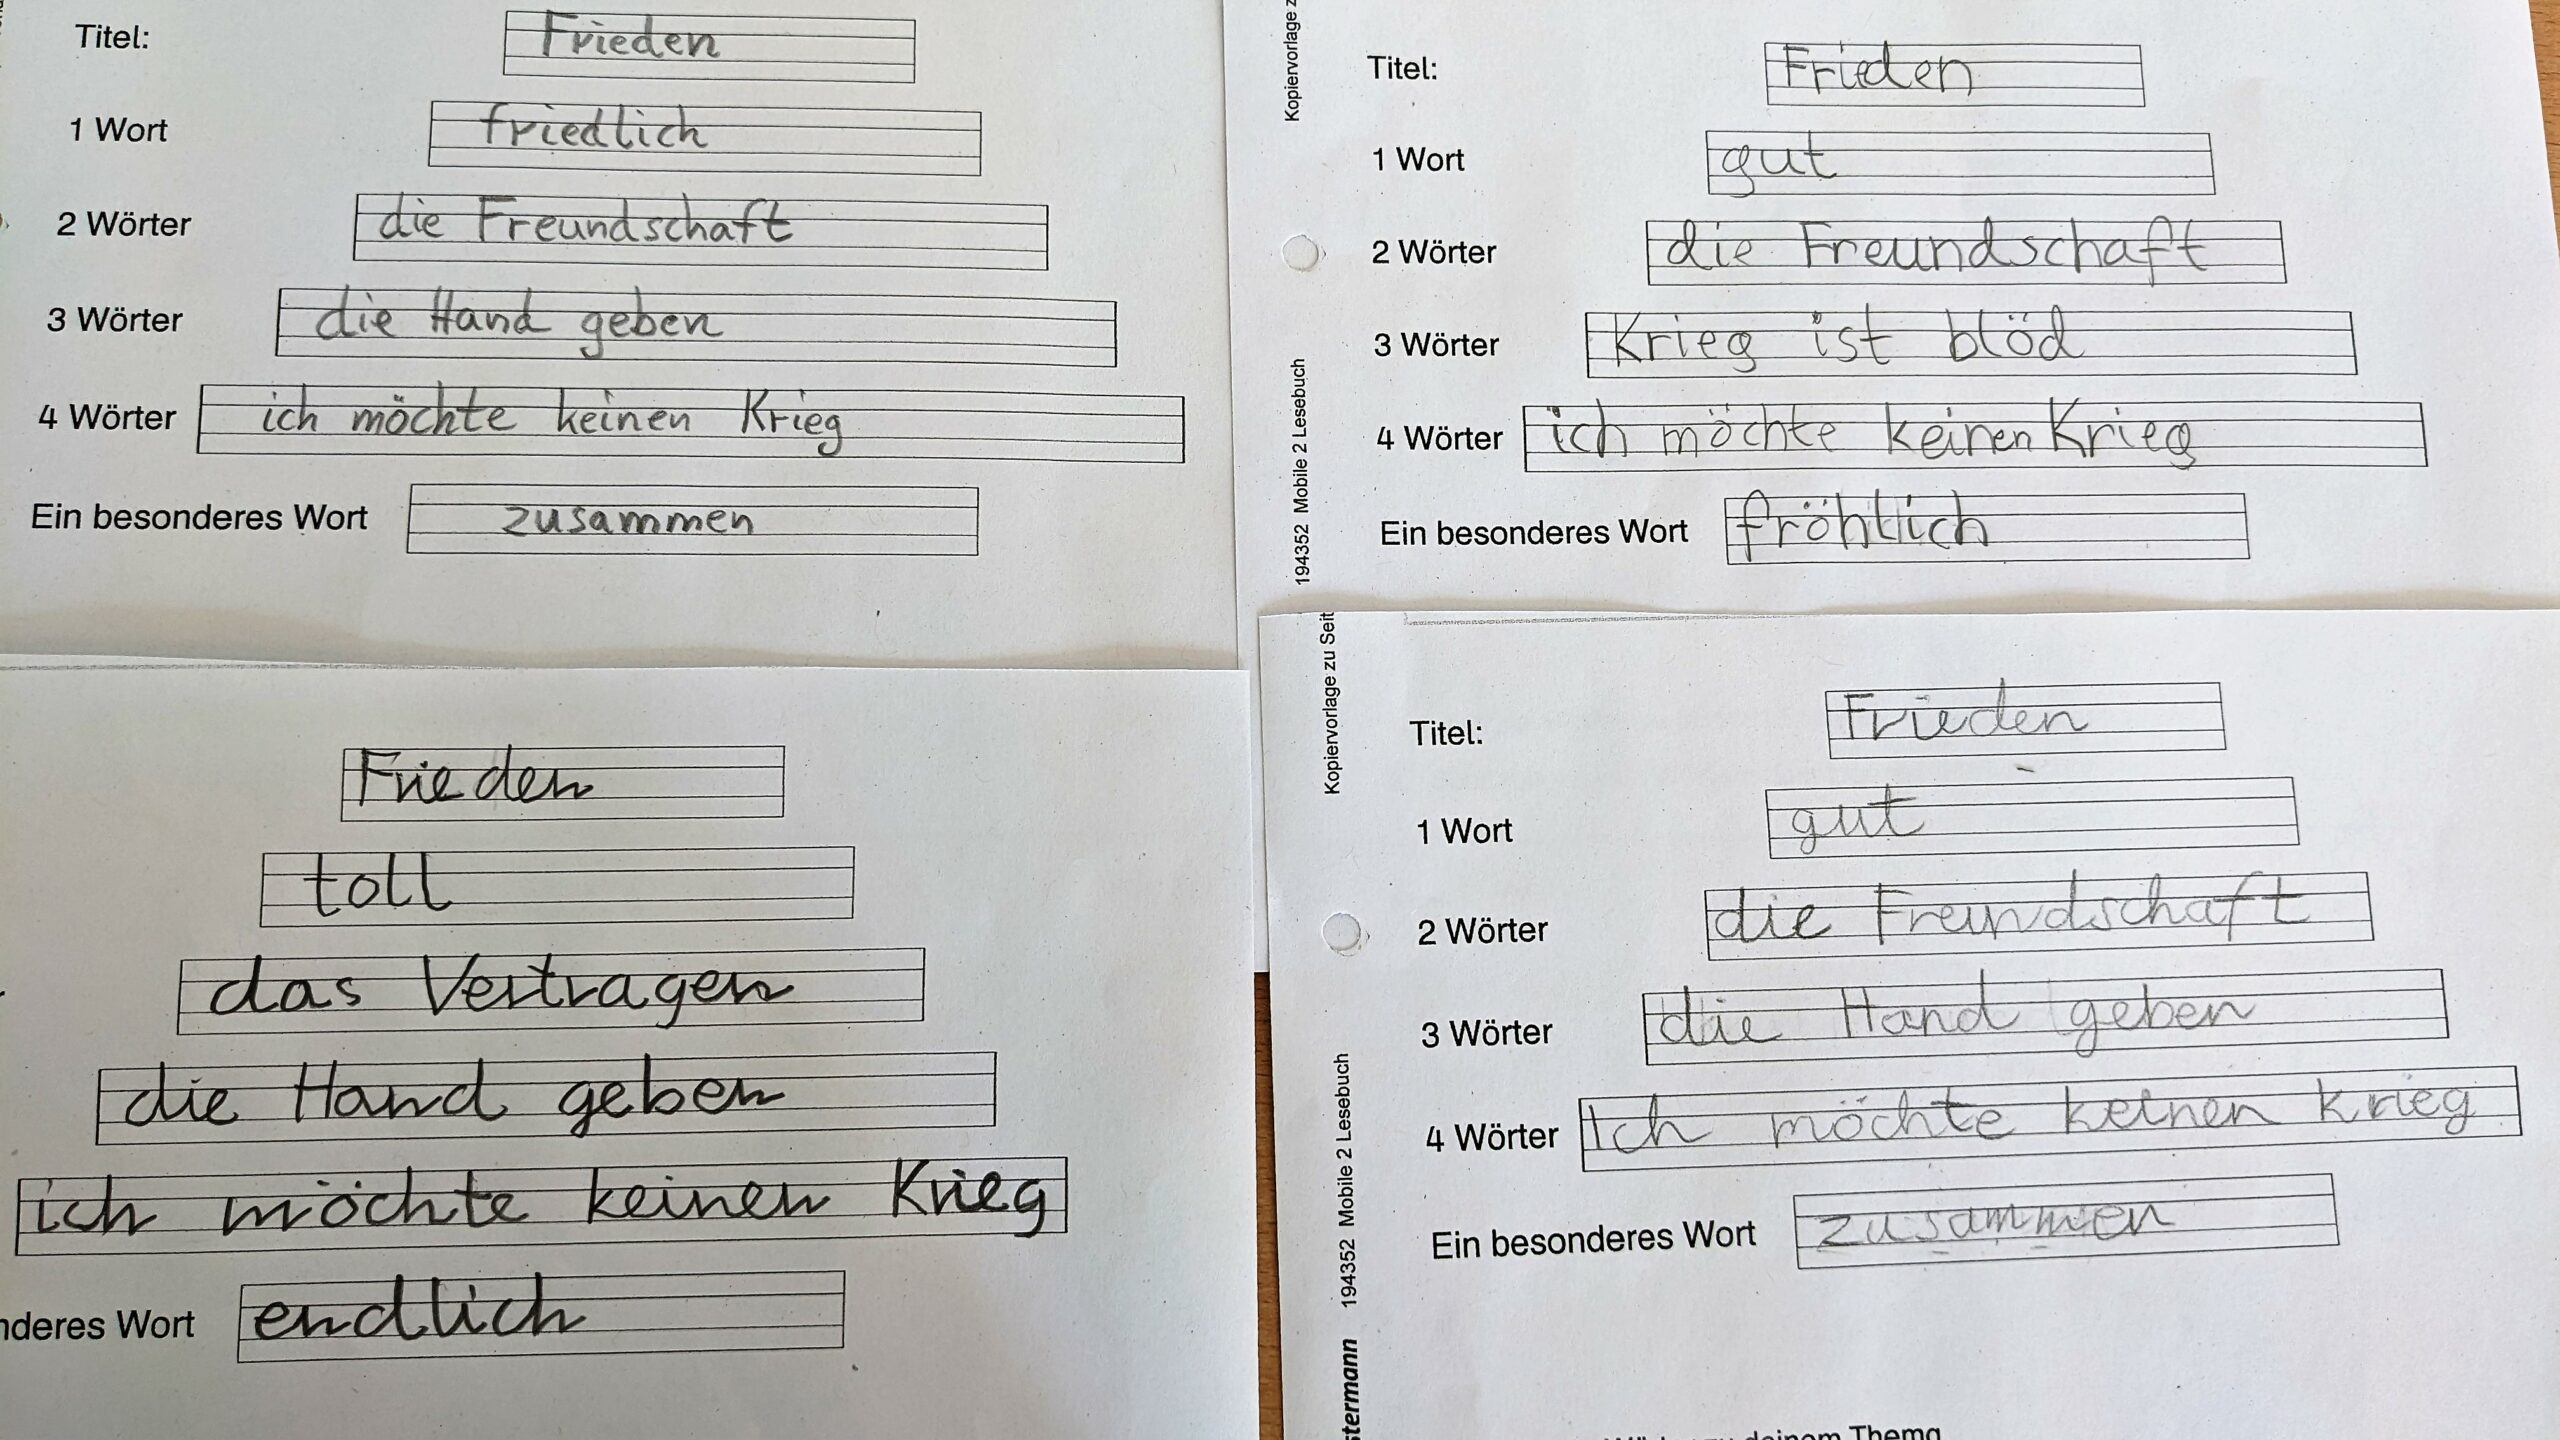 Titel: Frieden
1 Wort friedlich
2 Wörter die Freundschaft
3 Wörter die Hand geben
4 Wörter ich möchte keinen Krieg
Ein besonderes Wort zusammen
Kopiervorlage z
194352 Mobile 2 Lesebuch
Titel: Frieden
1 Wort gut
2 Wörter die Freundschaft
3 Wörter Krieg ist blöd
4 Wörter ich möchte keinen Krieg
Ein besonderes Wort fröhlich
Frieden
toll
das Vertragen
die Hand geben
ich möchte keinen Krieg
nderes Wort endlich
Kopiervorlage zu Seit
stermann 194352 Mobile 2 Lesebuch
Titel: Frieden
1 Wort gut
2 Wörter die Freundschaft
3 Wörter die Hand geben
4 Wörter Ich möchte keinen krieg
Ein besonderes Wort zusammen
zu deinem Thema